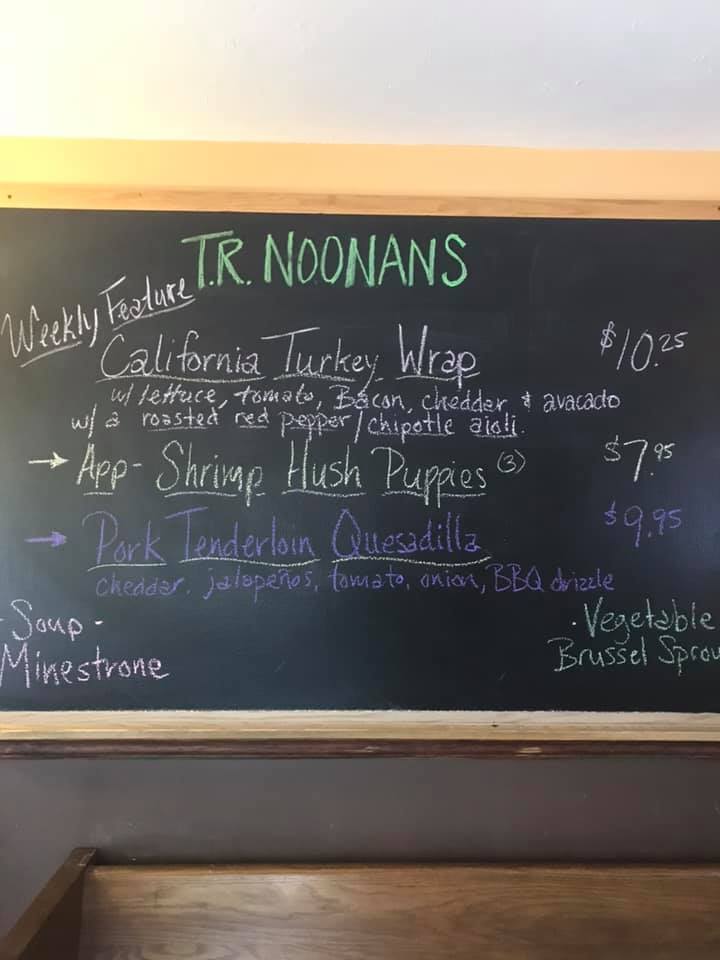 T.R. NOONANS
Weekly Feature
California Turkey Wrap $10.25
w/ lettuce, tomato, Bacon, cheddar & avacado
w/ a roasted red pepper/chipotle aioli.
→ App- Shrimp Hush Puppies (3) $7.95
→ Pork Tenderloin Quesadilla $9.95
cheddar, jalapeños, tomato, onion, BBQ drizzle
- Soup -
Minestrone
· Vegetable
Brussel Sprou